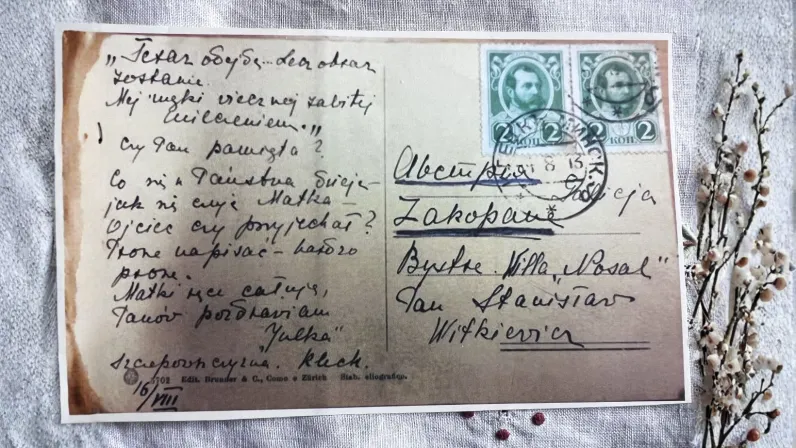 „Teraz odejdę... Lecz obraz
zostanie.
Mej męki wiecznej zabitej
milczeniem.„
Czy Pan pamięta?
Co się u Państwa dzieje –
jak się czuje Matka –
Ojciec czy przyjechał?
Proszę napisać – bardzo
proszę.
Matki ręce całuję,
Panów pozdrawiam
"Julka"
Szczepowszczyzna.
16/VIII
3702 Edit. Brunner & C., Como e Zürich Stab. eliografico.
2 КОП 2
2 КОП 2
8 13
Австрия Galicja
Zakopane
Bystre. Willa „Nosal"
Pan Stanisław
Witkiewicz